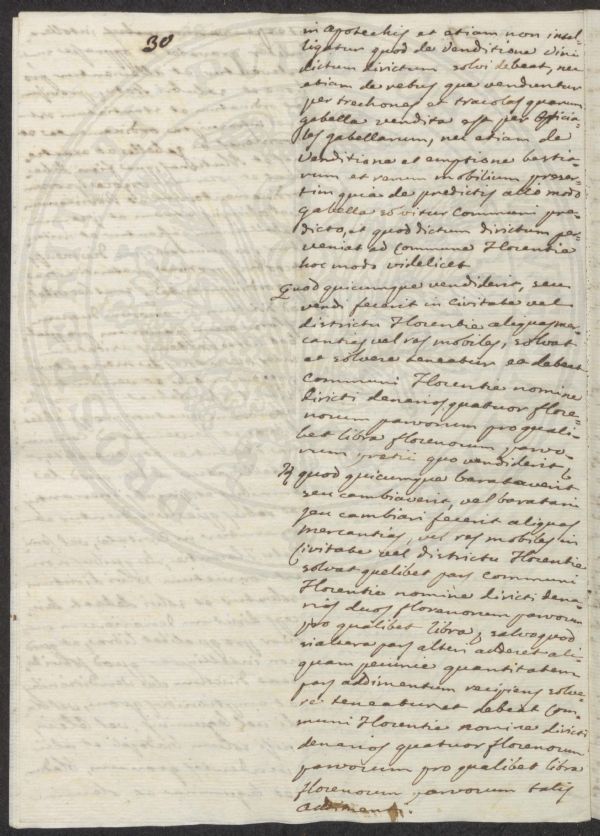 30
in apotechis et etiam non intel-
ligatur quod de venditione vini
dictum divictum solvi debeat, nec
etiam de rebus que venduntur
per trechones et tracolas quarum
gabella vendita est per officia-
les gabellarum, nec etiam de
venditione et emptione bestia-
rum et rerum mobilium preser-
tim quia de predictis alio modo
gabella solvitur Communi pre-
dicto, et quod dictum divictum per-
veniat ad Commune Florentie
hoc modo videlicet
Quod quicumque vendiderit, seu
vendi fecerit in Civitate vel
districtu Florentie aliquas mer-
cantias vel res mobiles, solvat
et solvere teneatur et debeat
Communi Florentie nomine
divicti denarios quatuor flore-
norum parvorum pro quali-
bet libra florenorum parvo-
rum pretii quo vendiderit,
quod quicumque barataverit
seu cambiaverit, vel baratari
seu cambiari fecerit aliquas
mercantias, vel res mobiles in
Civitate vel districtu Florentie
solvat quelibet pars Communi
Florentie nomine divicti dena-
rios duos florenorum parvorum
pro qualibet libra, salvo quod
si altera pars alteri adderet ali-
quam pecunie quantitatem
pars addimentum recipiens solve-
re teneatur et debeat Com-
muni Florentie nomine divicti
denarios quatuor florenorum
parvorum pro qualibet libra
florenorum parvorum talis
addimenti.